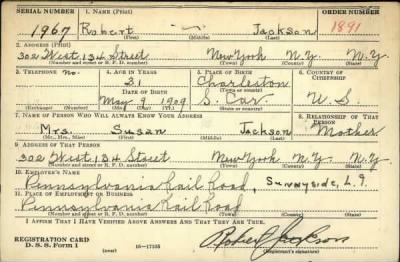 SERIAL NUMBER 1. NAME (Print) ORDER NUMBER
1967 Robert — Jackson 1891
(First) (Middle) (Last)
2. ADDRESS (Print)
302 West 134 Street New York N.Y. N.Y.
(Number and street or R. F. D. number) (Town) (County) (State)
3. TELEPHONE 4. AGE IN YEARS 5. PLACE OF BIRTH 6. COUNTRY OF CITIZENSHIP
No. 31 Charleston
DATE OF BIRTH (Town or county)
May 9 1909 S. Car. U.S.
(Exchange) (Number) (Mo.) (Day) (Yr.) (State or country)
7. NAME OF PERSON WHO WILL ALWAYS KNOW YOUR ADDRESS 8. RELATIONSHIP OF THAT PERSON
Mrs. Susan Jackson Mother
(Mr., Mrs., Miss) (First) (Middle) (Last)
9. ADDRESS OF THAT PERSON
302 West 134 Street New York N.Y. N.Y.
(Number and street or R. F. D. number) (Town) (County) (State)
10. EMPLOYER'S NAME
Pennsylvania Rail Road, Sunnyside, L.I.
11. PLACE OF EMPLOYMENT OR BUSINESS
Pennsylvania Rail Road
(Number and street or R. F. D. number) (Town) (County) (State)
I AFFIRM THAT I HAVE VERIFIED ABOVE ANSWERS AND THAT THEY ARE TRUE.
REGISTRATION CARD
D. S. S. Form 1 (over) 16—17105 Robert Jackson
(Registrant's signature)